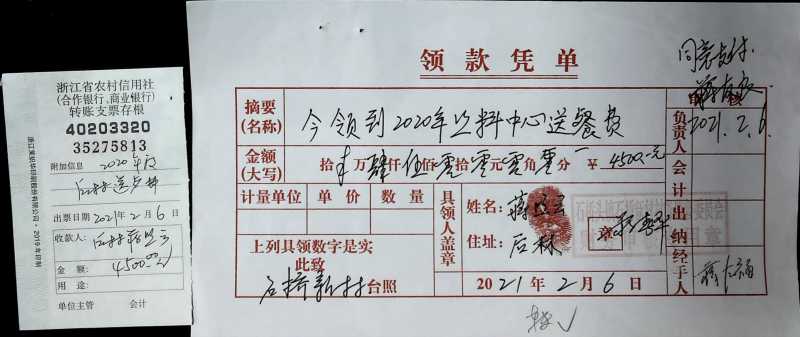 浙江省农村信用社
(合作银行、商业银行)
转账支票存根
40203320
35275813
附加信息 2020年
后林送
出票日期 2021年2月6日
收款人:后林蒋
金 额: 4500.00
用 途:
单位主管 会计
领款凭单
同意支付.
摘要
(名称) 今领到2020年照料中心送餐费
审 核
负责人 2021.2.6.
金额
(大写) 拾 万肆仟伍佰零拾零元零角零分 ¥ 4500.元
会计
计量单位 单 价 数 量
具领人盖章
姓名:蒋
住址:后林
章
出纳
上列具领数字是实
此致
石桥新村台照
2021年2月6日
经手人